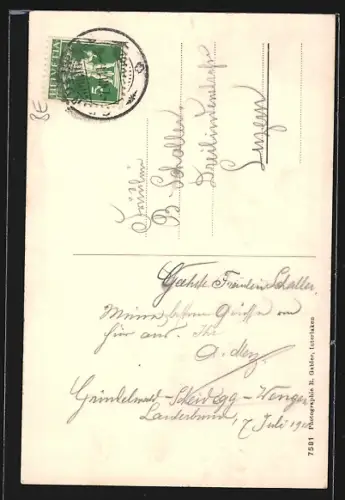 HELVETIA
BE
Fräulein
B. Schaller
Dreilindenstrasse
Luzern
Geehrte Fräulein Schaller,
Meine Grüsse
für Ihr
Grindelwald-Scheidegg-Wengen
Lauterbrunn, 7 Juli
7581 Photographie R. Gabler, Interlaken